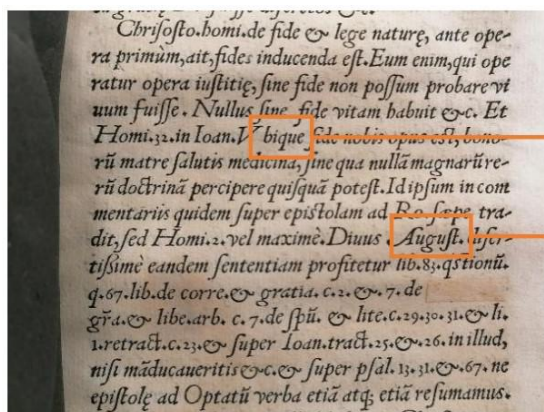 Chrisosto.homi.de fide & lege naturę, ante ope-
ra primùm,ait,fides inducenda est.Eum enim,qui ope
ratur opera iustitię,sine fide non possum probare vi
uum fuisse. Nullus sine fide vitam habuit &c. Et
Homi.32.in Ioan.Vbique fide nobis opus est, bono-
rũ matre salutis medicina, sine qua nullã magnarũ re-
rũ doctrinã percipere quisquã potest. Id ipsum in com
mentariis quidem super epistolam ad Ro. sæpe tra-
dit,sed Homi.2.vel maximè.Diuus August. diser-
tissimè eandem sententiam profitetur lib.83.qstionũ.
q.67.lib.de corre.& gratia.c.2.&.7.de
gr̃a.& libe.arb. c.7.de spũ. & lite.c.29.30.31.& li.
1.retract.c.23.& super Ioan.tract.25.&.26.in illud,
nisi mãducaueritis &c.& super psal.13.31.&.67. ne
epistolę ad Optatũ verba etiã atq; etiã resumamus.